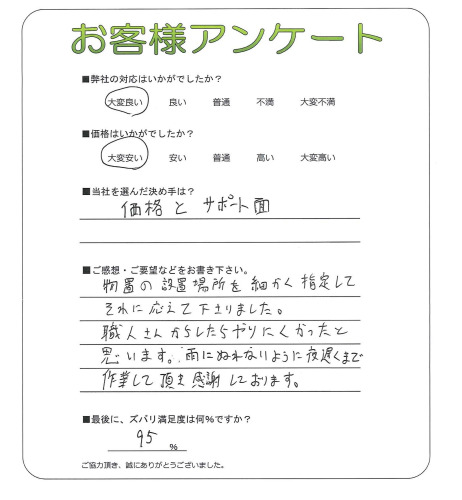 お客様アンケート
■弊社の対応はいかがでしたか？
大変良い 良い 普通 不満 大変不満
■価格はいかがでしたか？
大変安い 安い 普通 高い 大変高い
■当社を選んだ決め手は？
価格と サポート面
■ご感想・ご要望などをお書き下さい。
物置の設置場所を細かく指定して
それに応えて下さりました。
職人さんからしたらやりにくかったと
思います。雨にぬれないように夜遅くまで
作業して頂き感謝しております。
■最後に、ズバリ満足度は何%ですか？
95 %
ご協力頂き、誠にありがとうございました。